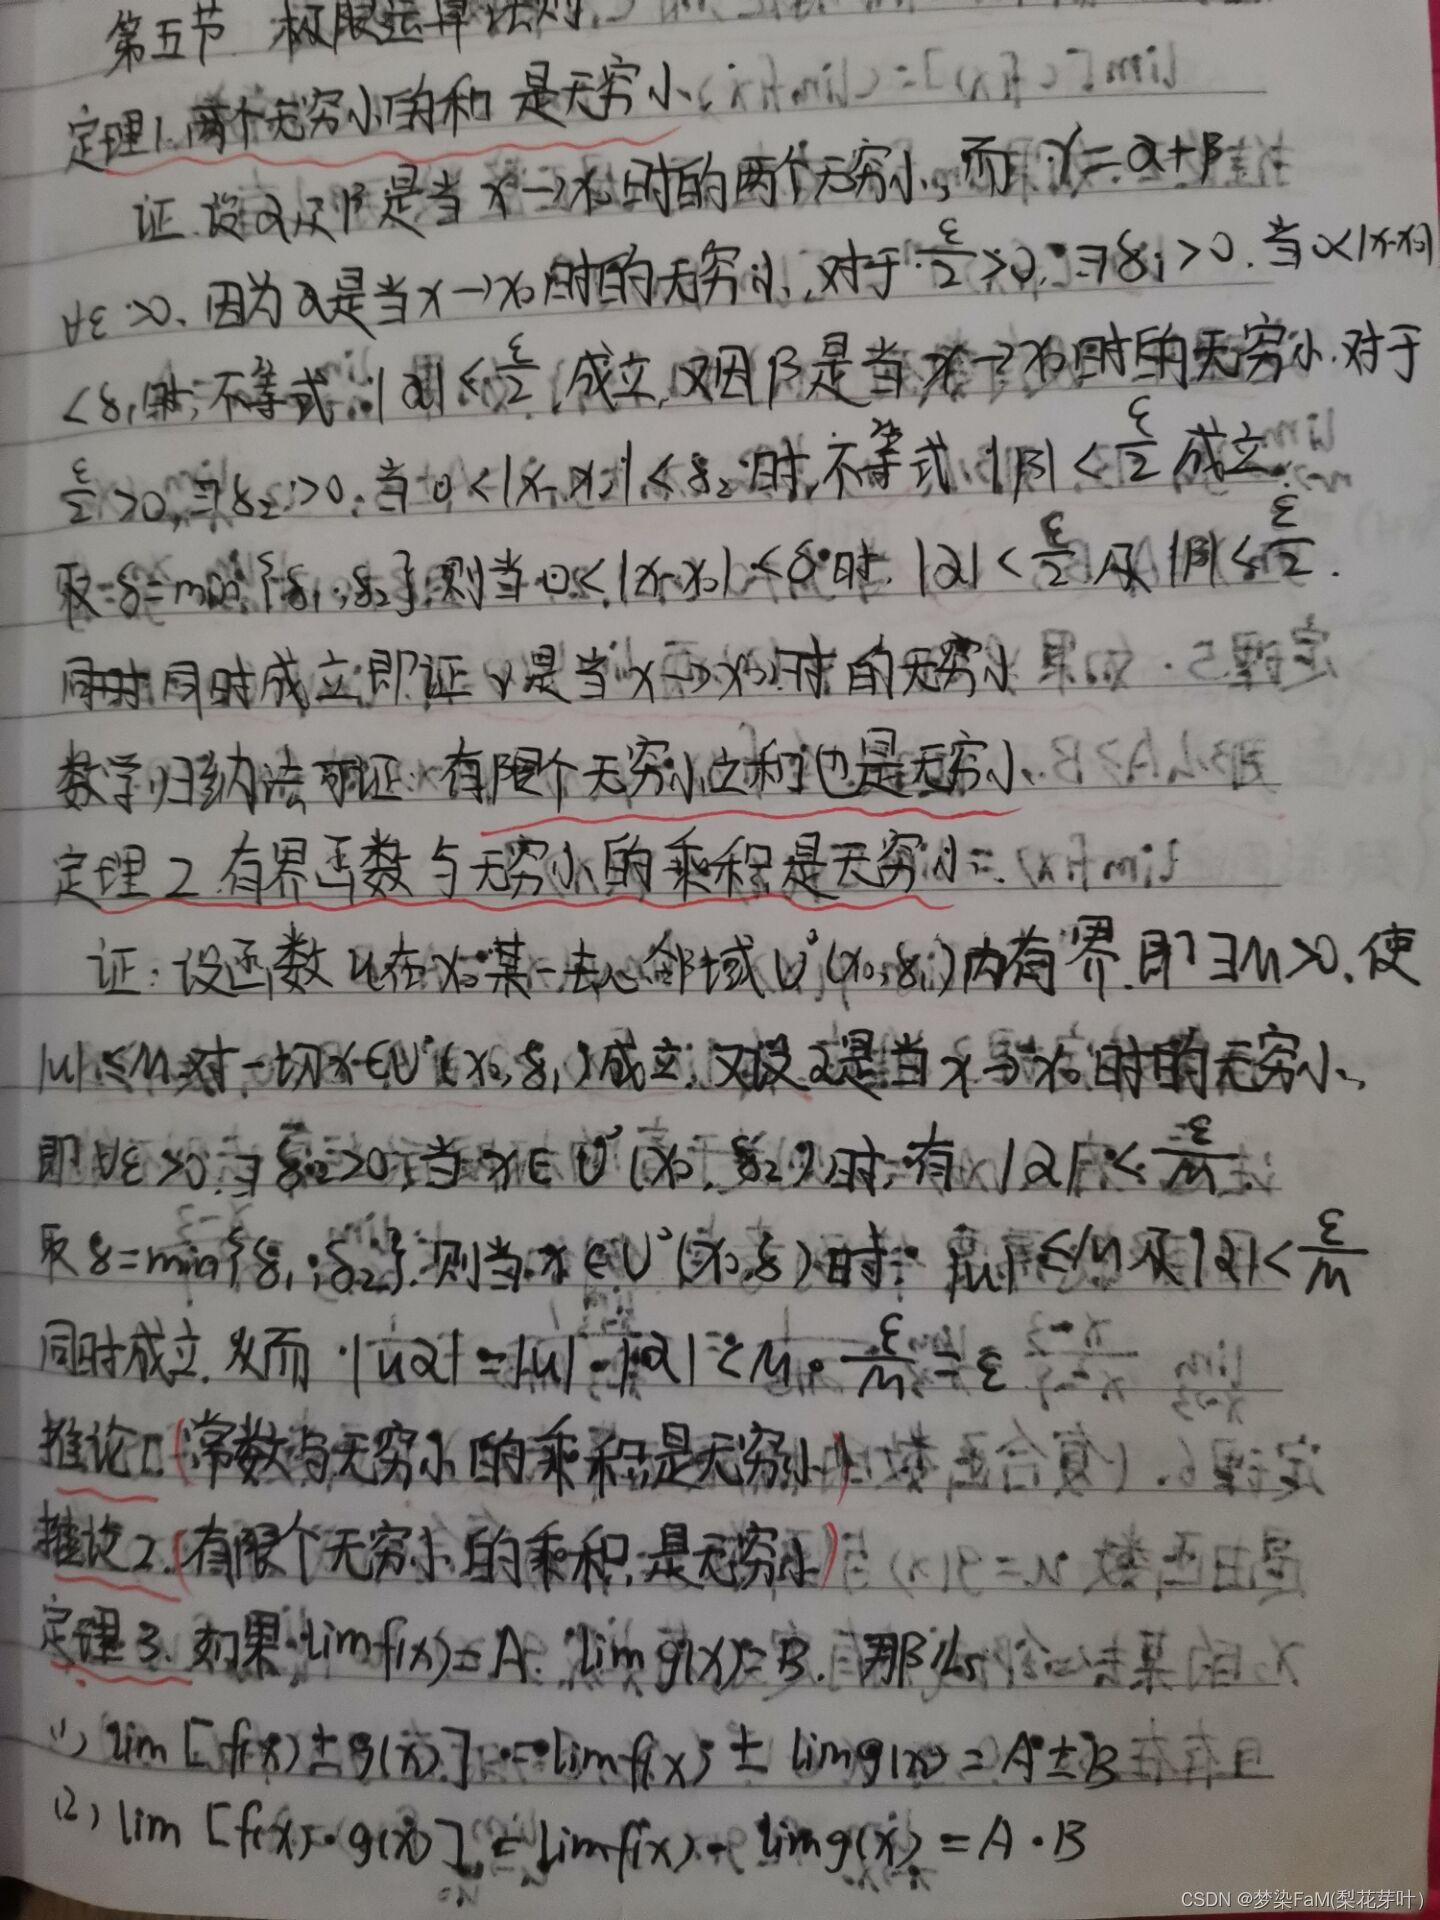 第五节 极限运算法则
定理1.两个无穷小的和是无穷小
证.设α及β是当x→x₀时的两个无穷小,而γ=α+β
∀ε>0.因为α是当x→x₀时的无穷小,对于ε/2>0.∃δ₁>0.当0<|x-x₀|
<δ₁时,不等式|α|<ε/2成立,又因β是当x→x₀时的无穷小.对于
ε/2>0,∃δ₂>0.当0<|x-x₀|<δ₂时,不等式|β|<ε/2成立.
取δ=min{δ₁,δ₂},则当0<|x-x₀|<δ时.|α|<ε/2及|β|<ε/2.
同时成立,即证γ是当x→x₀时的无穷小
数学归纳法可证:有限个无穷小之和也是无穷小.
定理2.有界函数与无穷小的乘积是无穷小.
证:设函数u在x₀某一去心邻域U°(x₀,δ₁)内有界.即∃M>0.使
|u|≤M对一切x∈U°(x₀,δ₁)成立.又设α是当x→x₀时的无穷小,
即∀ε>0.∃δ₂>0,当x∈U°(x₀,δ₂)时,有|α|<ε/M
取δ=min{δ₁,δ₂}.则当x∈U°(x₀,δ)时.|u|≤M及|α|<ε/M
同时成立.从而|uα|=|u|·|α|<M·ε/M=ε
推论1.(常数与无穷小的乘积是无穷小)
推论2.(有限个无穷小的乘积是无穷小)
定理3.如果limf(x)=A.limg(x)=B.那么
(1)lim[f(x)±g(x)]=limf(x)±limg(x)=A±B
(2)lim[f(x)·g(x)]=limf(x)·limg(x)=A·B
CSDN @梦染FaM(梨花芽叶)